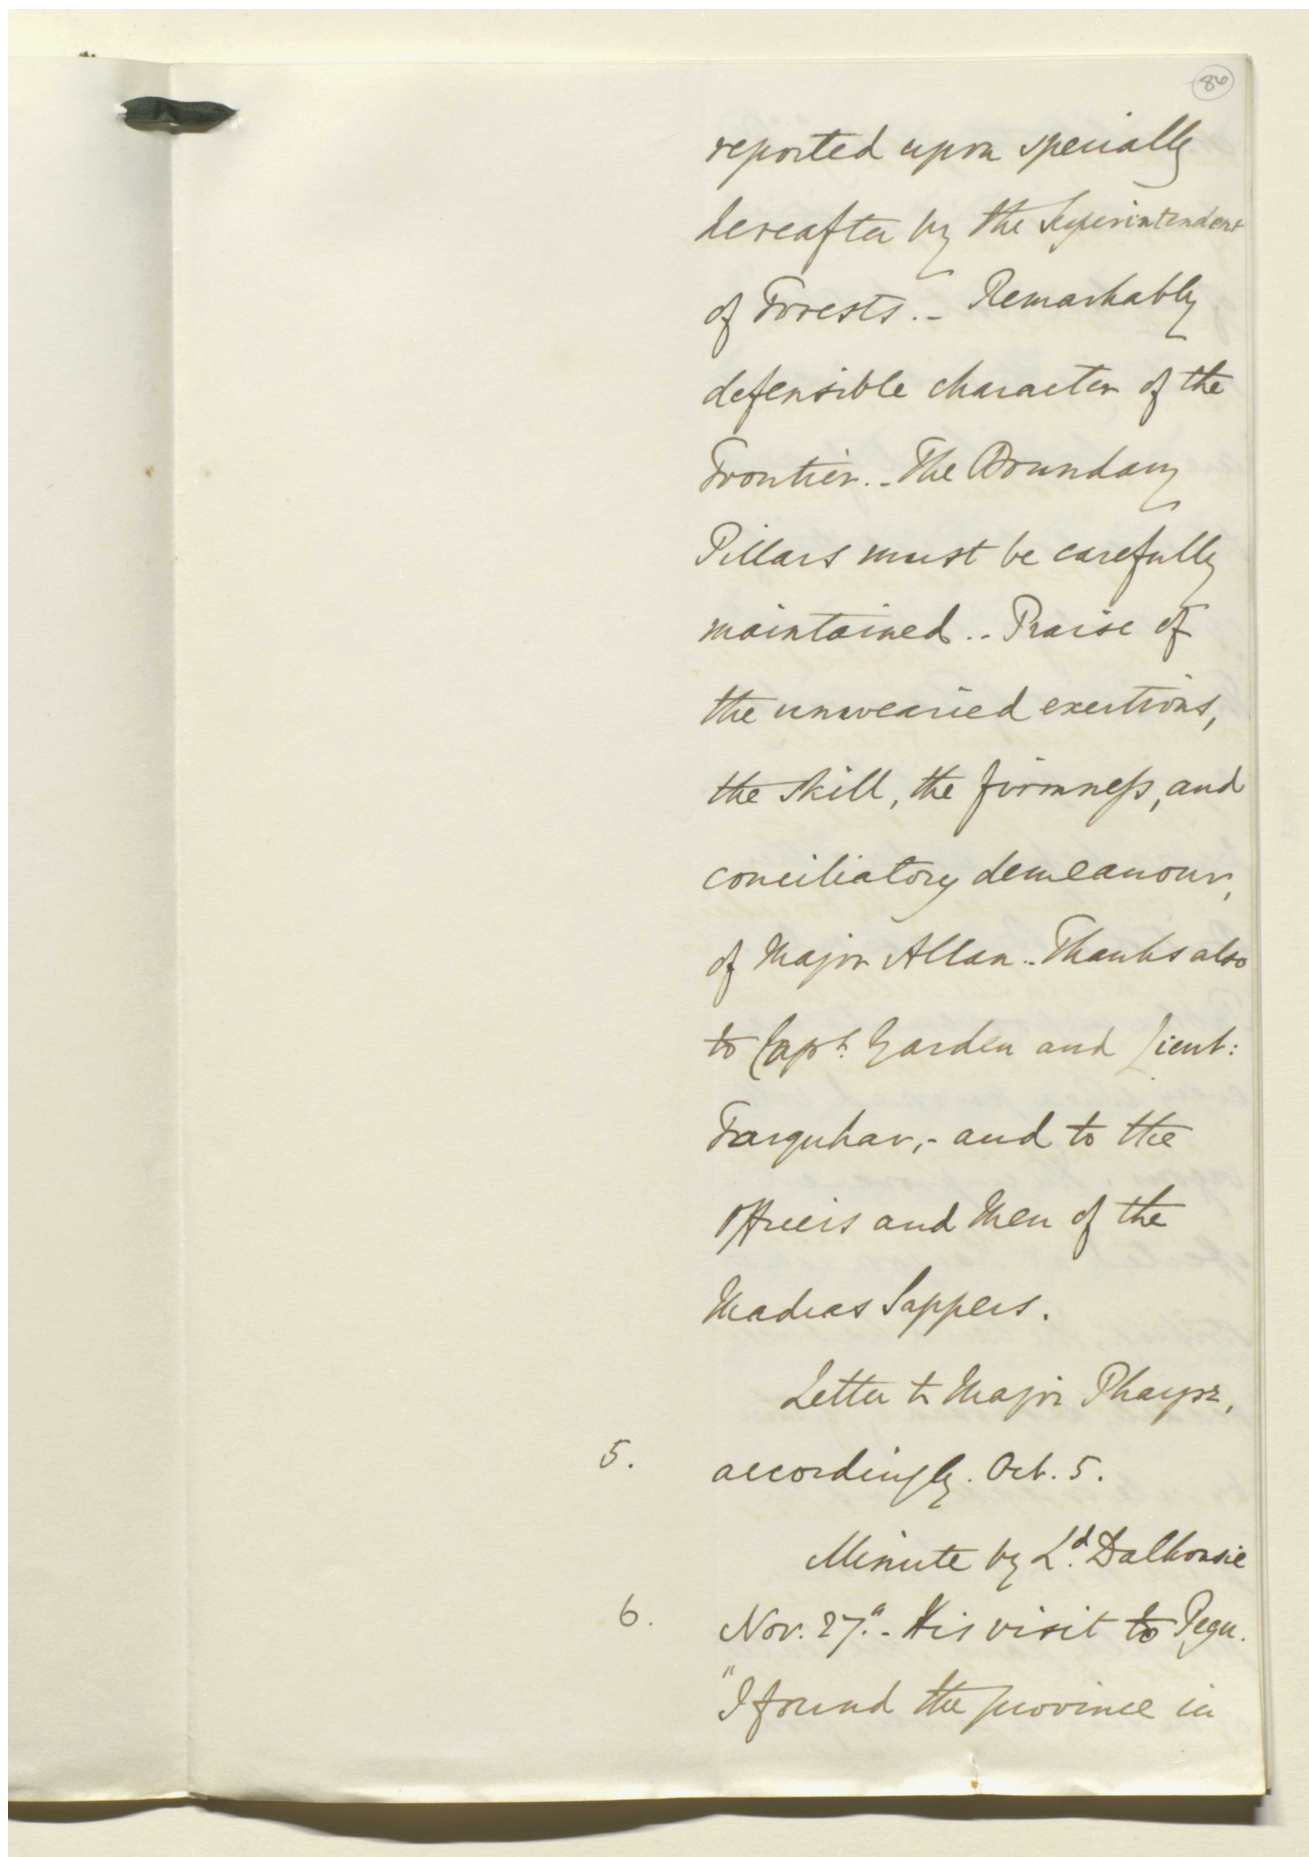 86
reported upon specially
hereafter by the Superintendent
of Forests._ Remarkably
defensible character of the
Frontier._ The Boundary
Pillars must be carefully
maintained._ Praise of
the unwearied exertions,
the skill, the firmness, and
conciliatory demeanour,
of Major Allan._ Thanks also
to Capt. Garden and Lieut:
Farquhar,- and to the
Officers and Men of the
Madras Sappers.
Letter to Major Phayre,
5. accordingly. Oct. 5.
Minute by Ld. Dalhousie
6. Nov. 27.- His visit to Pegu.
"I found the province in